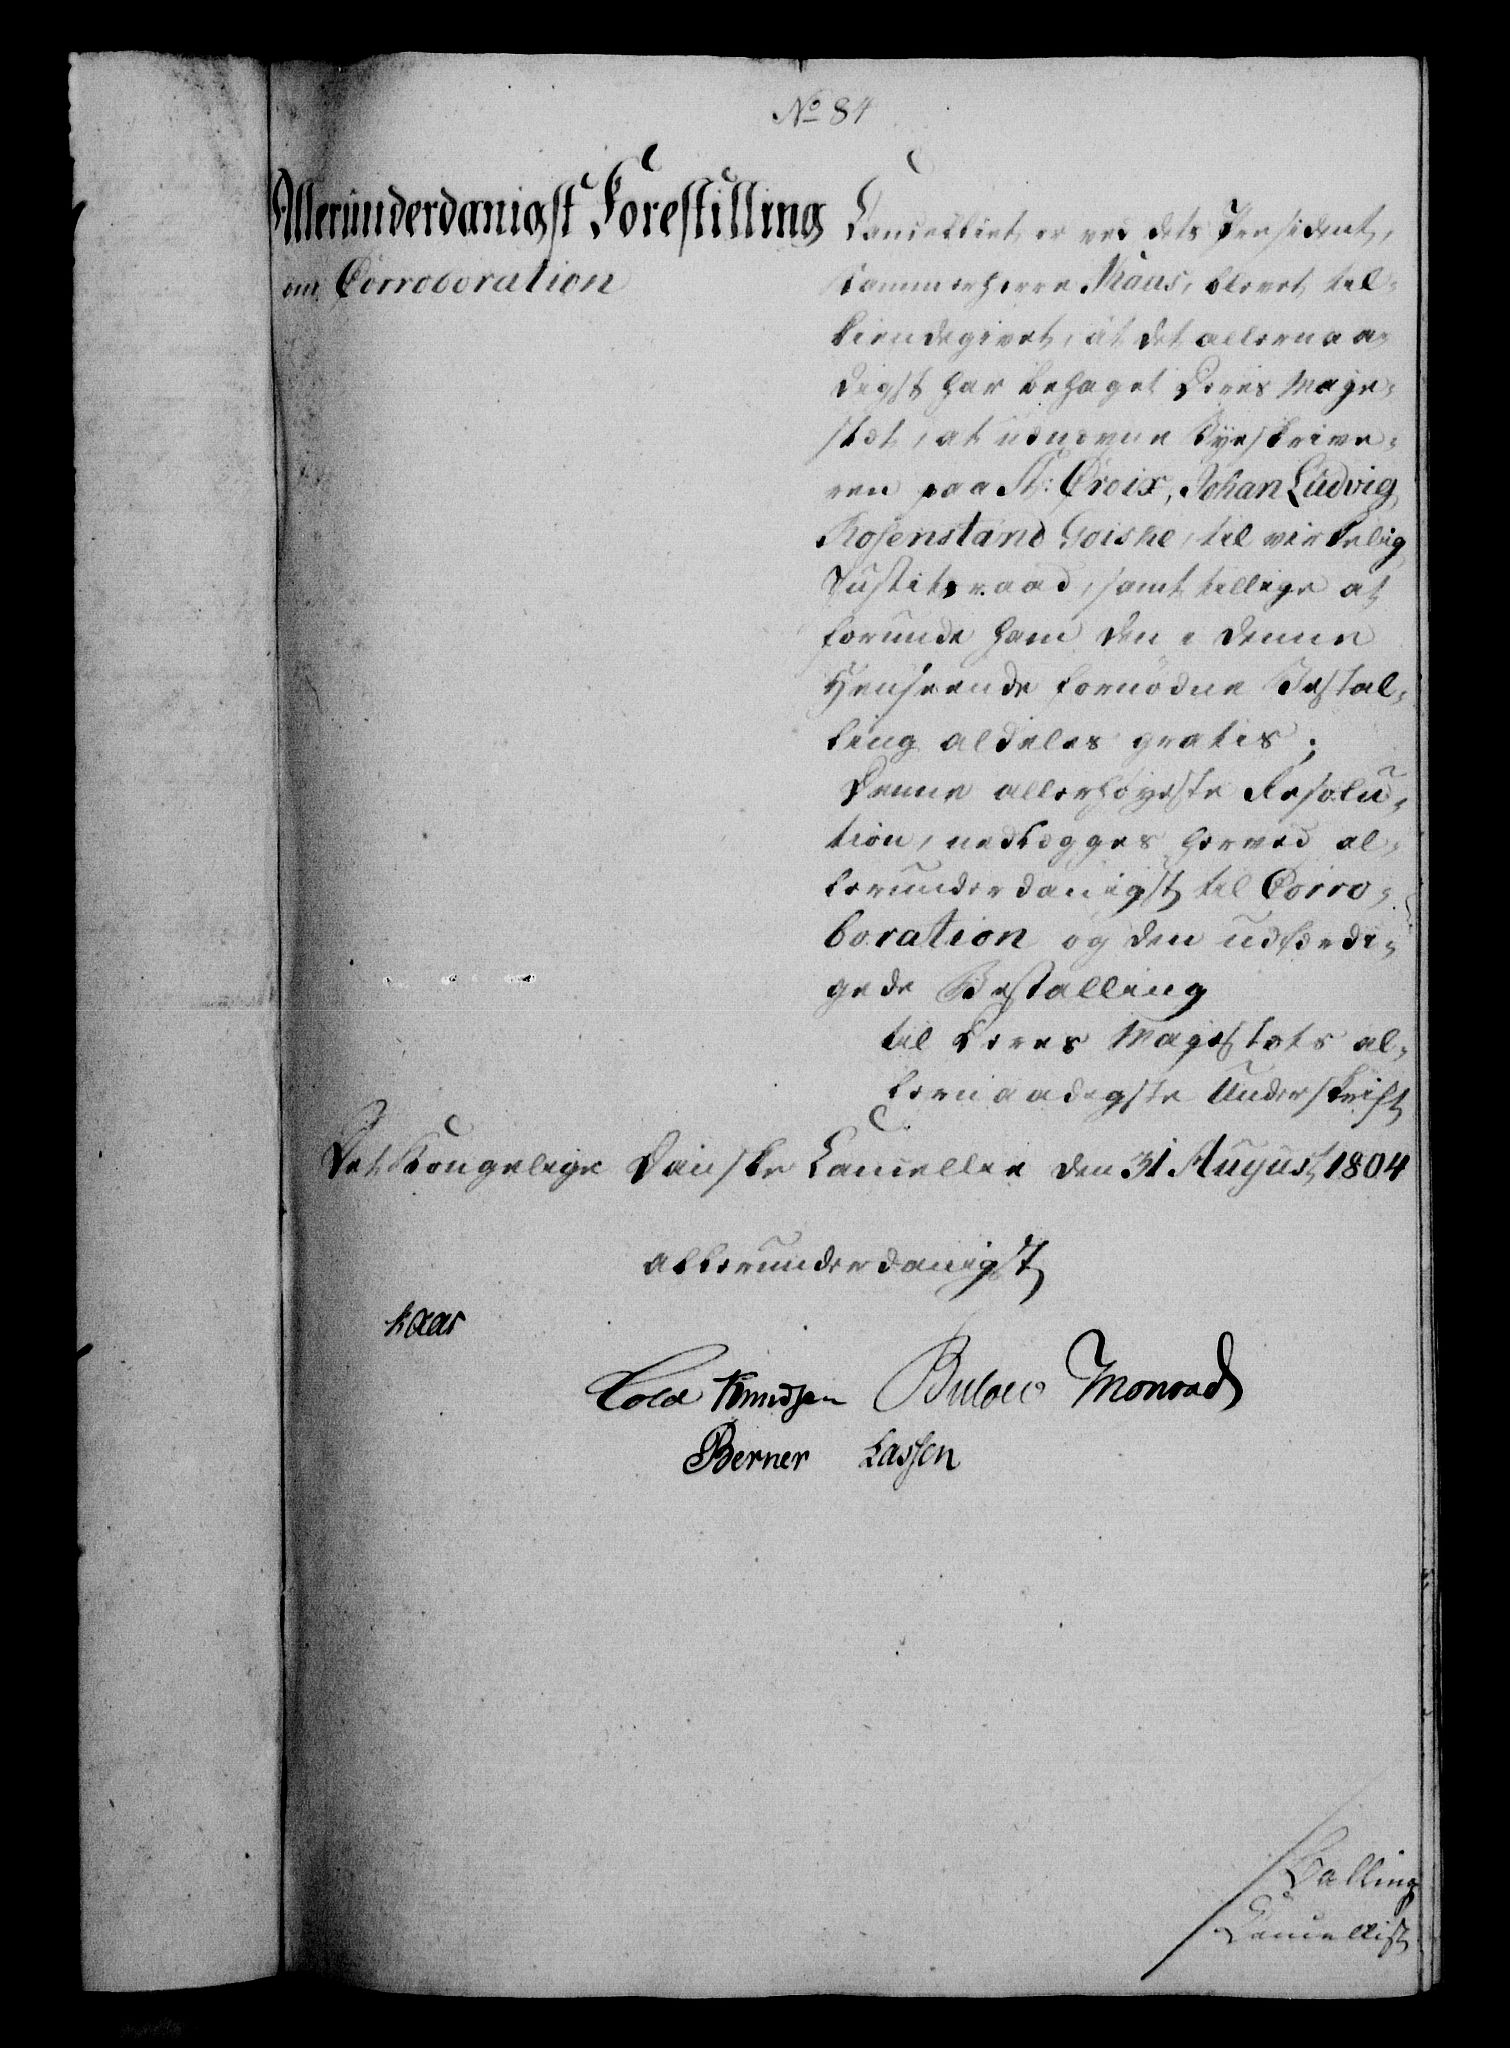 No 84
Allerunderdanigst Forestilling
om Corroboration
Cancelliet er ved dets Præsident,
Kammerherre Kaas, blevet til-
kiendegivet, at det allernaa-
digst har behaget Deres Maje-
stæt, at udnævne Byeskrive-
ren paa St: Croix, Johan Ludvig
Rosenstand Goiske, til virkelig
Justitsraad, samt tillige at
forunde ham den i denne
Henseende fornødne Bestal-
ling aldeles gratis;
Denne allerhøyeste Resolu-
tion, nedlægges herved al-
lerunderdanigst til Corro-
boration og den udfærdi-
gede Bestalling
til Deres Majestæts al-
lernaadigste Underskrift
Det Kongelige Danske Cancellie den 31 August 1804
allerunderdanigst
Kaas
Cold Knudsen Bülow Monrad
Berner Lassen
Balling
Cancellist